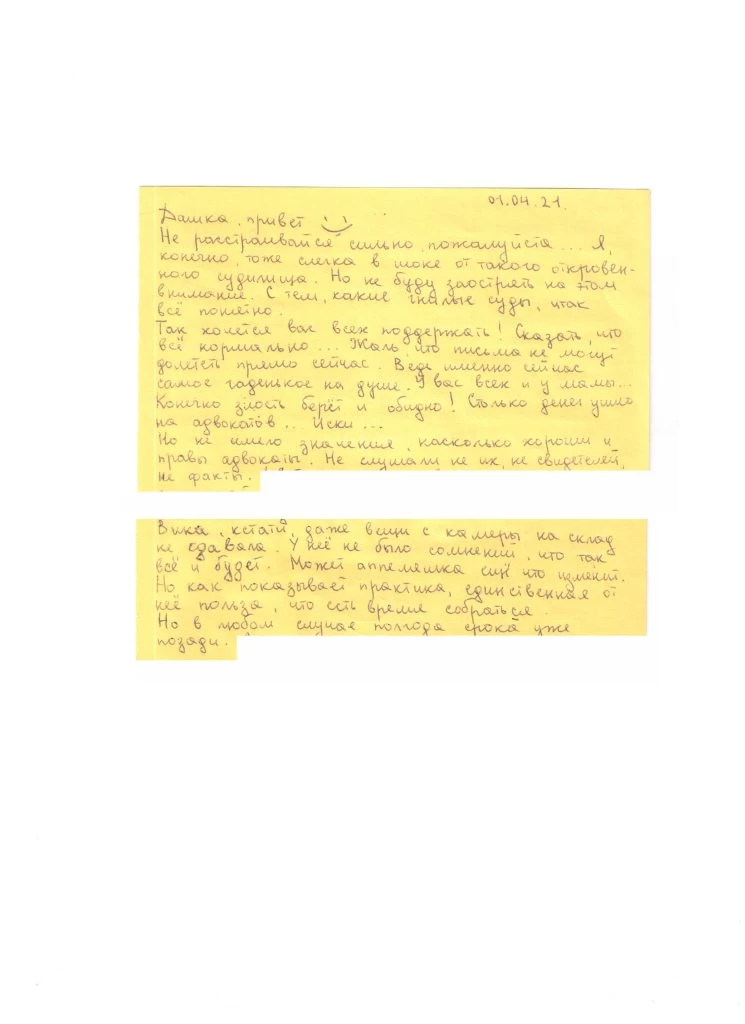 01.04.21.
Дашка, привет
Не расстраивайся сильно, пожалуйста... Я,
конечно, тоже слегка в шоке от такого откровен-
ного судилища. Но не буду заострять на этом
внимание. С тем, какие гнилые суды, итак
всё понятно.
Так хочется вас всех поддержать! Сказать, что
всё нормально... Жаль, что письма не могут
долететь прямо сейчас. Ведь именно сейчас
самое гаденькое на душе. У вас всех и у мамы...
Конечно злость берёт и обидно! Столько денег ушло
на адвокатов... Иски...
Но не имело значения, насколько хороши и
правы адвокаты. Не слушали не их, не свидетелей,
не факты.
Вика, кстати, даже вещи с камеры на склад
не сдавала. У неё не было сомнений, что так
всё и будет. Может аппеляшка что изменит.
Но как показывает практика, единственная от
неё польза, что есть время собраться.
Но в любом случае полгода срока уже
позади.